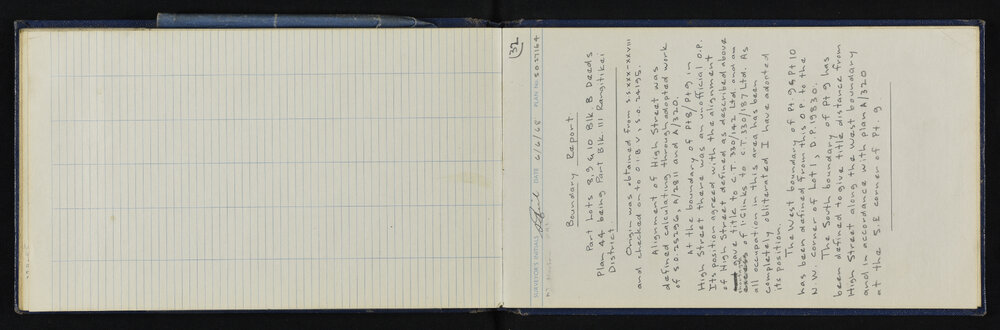 (32)
SURVEYOR'S INITIALS DATE 6/6/68 PLAN No. SO 27164
Boundary Report
Part Lots 8, 9 & 10 Blk B Deeds
Plan 44 being Part Blk III Rangitikei
District
Origin was obtained from
and checked on to O.I.B.V, S.O. 26195.
Alignment of High Street was
defined calculating through adopted work
of S.O. 25296, A/2811 and A/320.
At the boundary of Pt 8/Pt 9 in
High Street there was an unofficial O.P.
Its position agreed with the alignment
of High Street defined as described above
gave title to C.T. 330/142 Ltd. and an
excess of 1.6 links to C.T. 330/187 Ltd. As
all occupation in this area has been
completely obliterated I have adopted
its position.
The West boundary of Pt 9 & Pt 10
has been defined from this O.P. to the
N.W. corner of Lot 1, D.P. 19830.
The South boundary of Pt 9 has
been defined to give title distance from
High Street along the West boundary
and in accordance with plan A/320
at the S.E. corner of Pt. 9